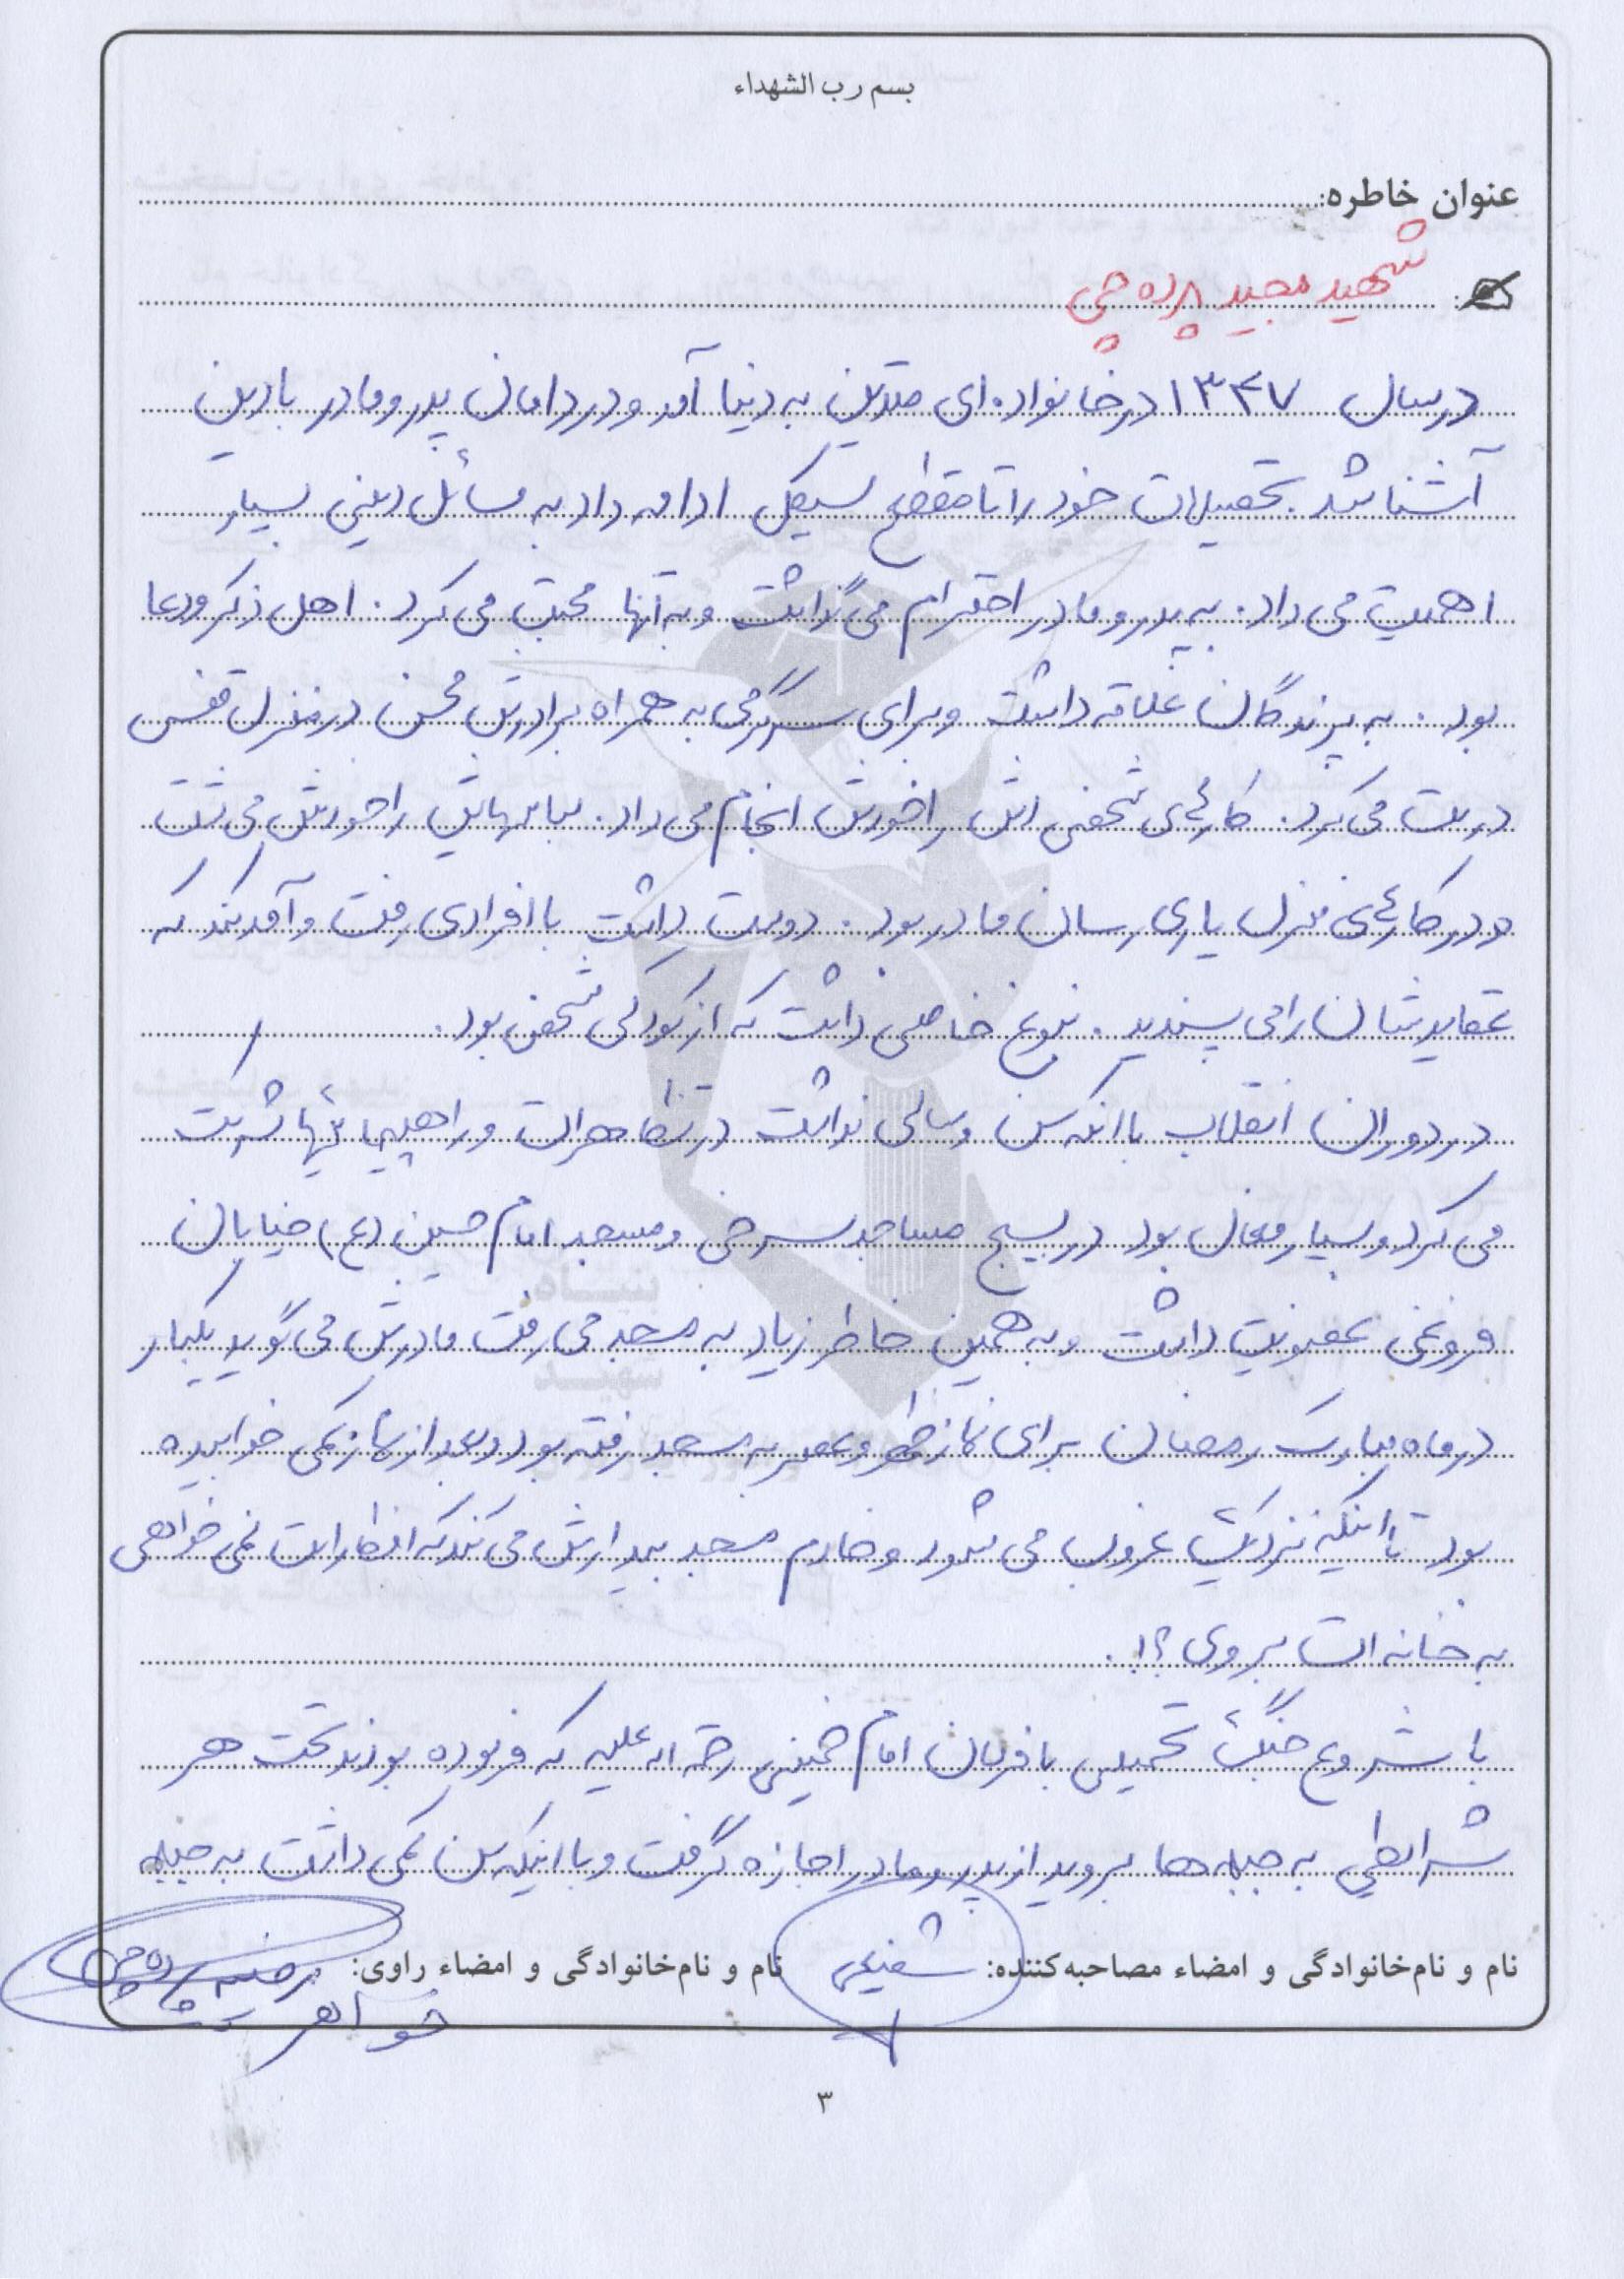 بسم رب الشهداء
عنوان خاطره:
شهید مجید پرده چی
در سال ۱۳۴۷ در خانواده ای متدین به دنیا آمد و در دامان پدر و مادر با دین
آشنا شد. تحصیلات خود را تا مقطع سیکل ادامه داد به مسائل دینی بسیار
اهمیت می داد. به پدر و مادر احترام می گذاشت و به آنها محبت می کرد. اهل ذکر و دعا
بود. به پرندگان علاقه داشت و برای سرگرمی به همراه برادرش محسن در منزل قفس
درست می کرد. کارهای شخصی اش را خودش انجام می داد. لباسهایش را خودش می شست
و در کارهای منزل یاری رسان مادر بود. دوست داشت با افرادی رفت و آمد کند که
عقایدشان را می پسندید. نبوغ خاصی داشت که از کودکی مشخص بود.
در دوران انقلاب با آنکه سن و سالی نداشت در تظاهرات و راهپیمائیها شرکت
می کرد و بسیار فعال بود در بسیج مساجد سرخی و مسجد امام حسین (ع) خیابان
فروغی عضویت داشت و به همین خاطر زیاد به مسجد می رفت مادرش می گوید یکبار
در ماه مبارک رمضان برای نماز ظهر و عصر به مسجد رفته بود و بعد از نماز کمی خوابیده
بود تا اینکه نزدیک غروب می شود و خادم مسجد بیدارش می کند که افطار است نمی خواهی
به خانه ات بروی؟!.
با شروع جنگ تحمیلی با فرمان امام خمینی رحمه اله علیه که فرموده بودند تحت هر
شرایطی به جبهه ها بروید از پدر و مادر اجازه گرفت و با اینکه سن کمی داشت به جبهه
نام و نام‌خانوادگی و امضاء مصاحبه‌کننده: شفیعی نام و نام‌خانوادگی و امضاء راوی: مرضیه پرده چی
خواهر
۳